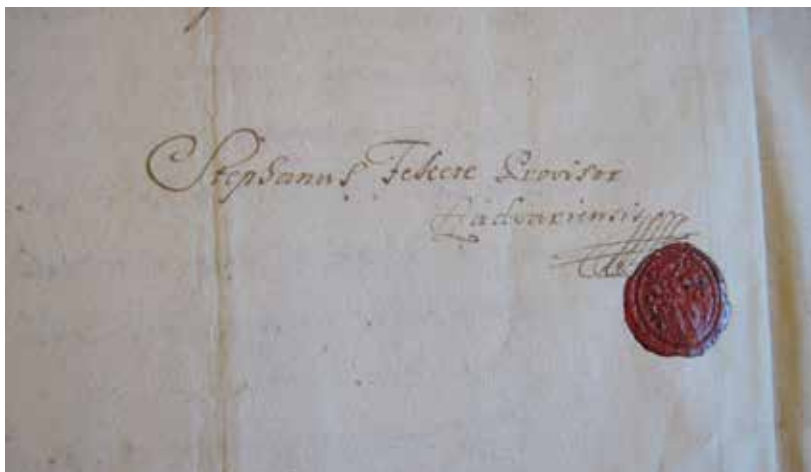 Stephanus Fekete Provisor
Radvaniensis